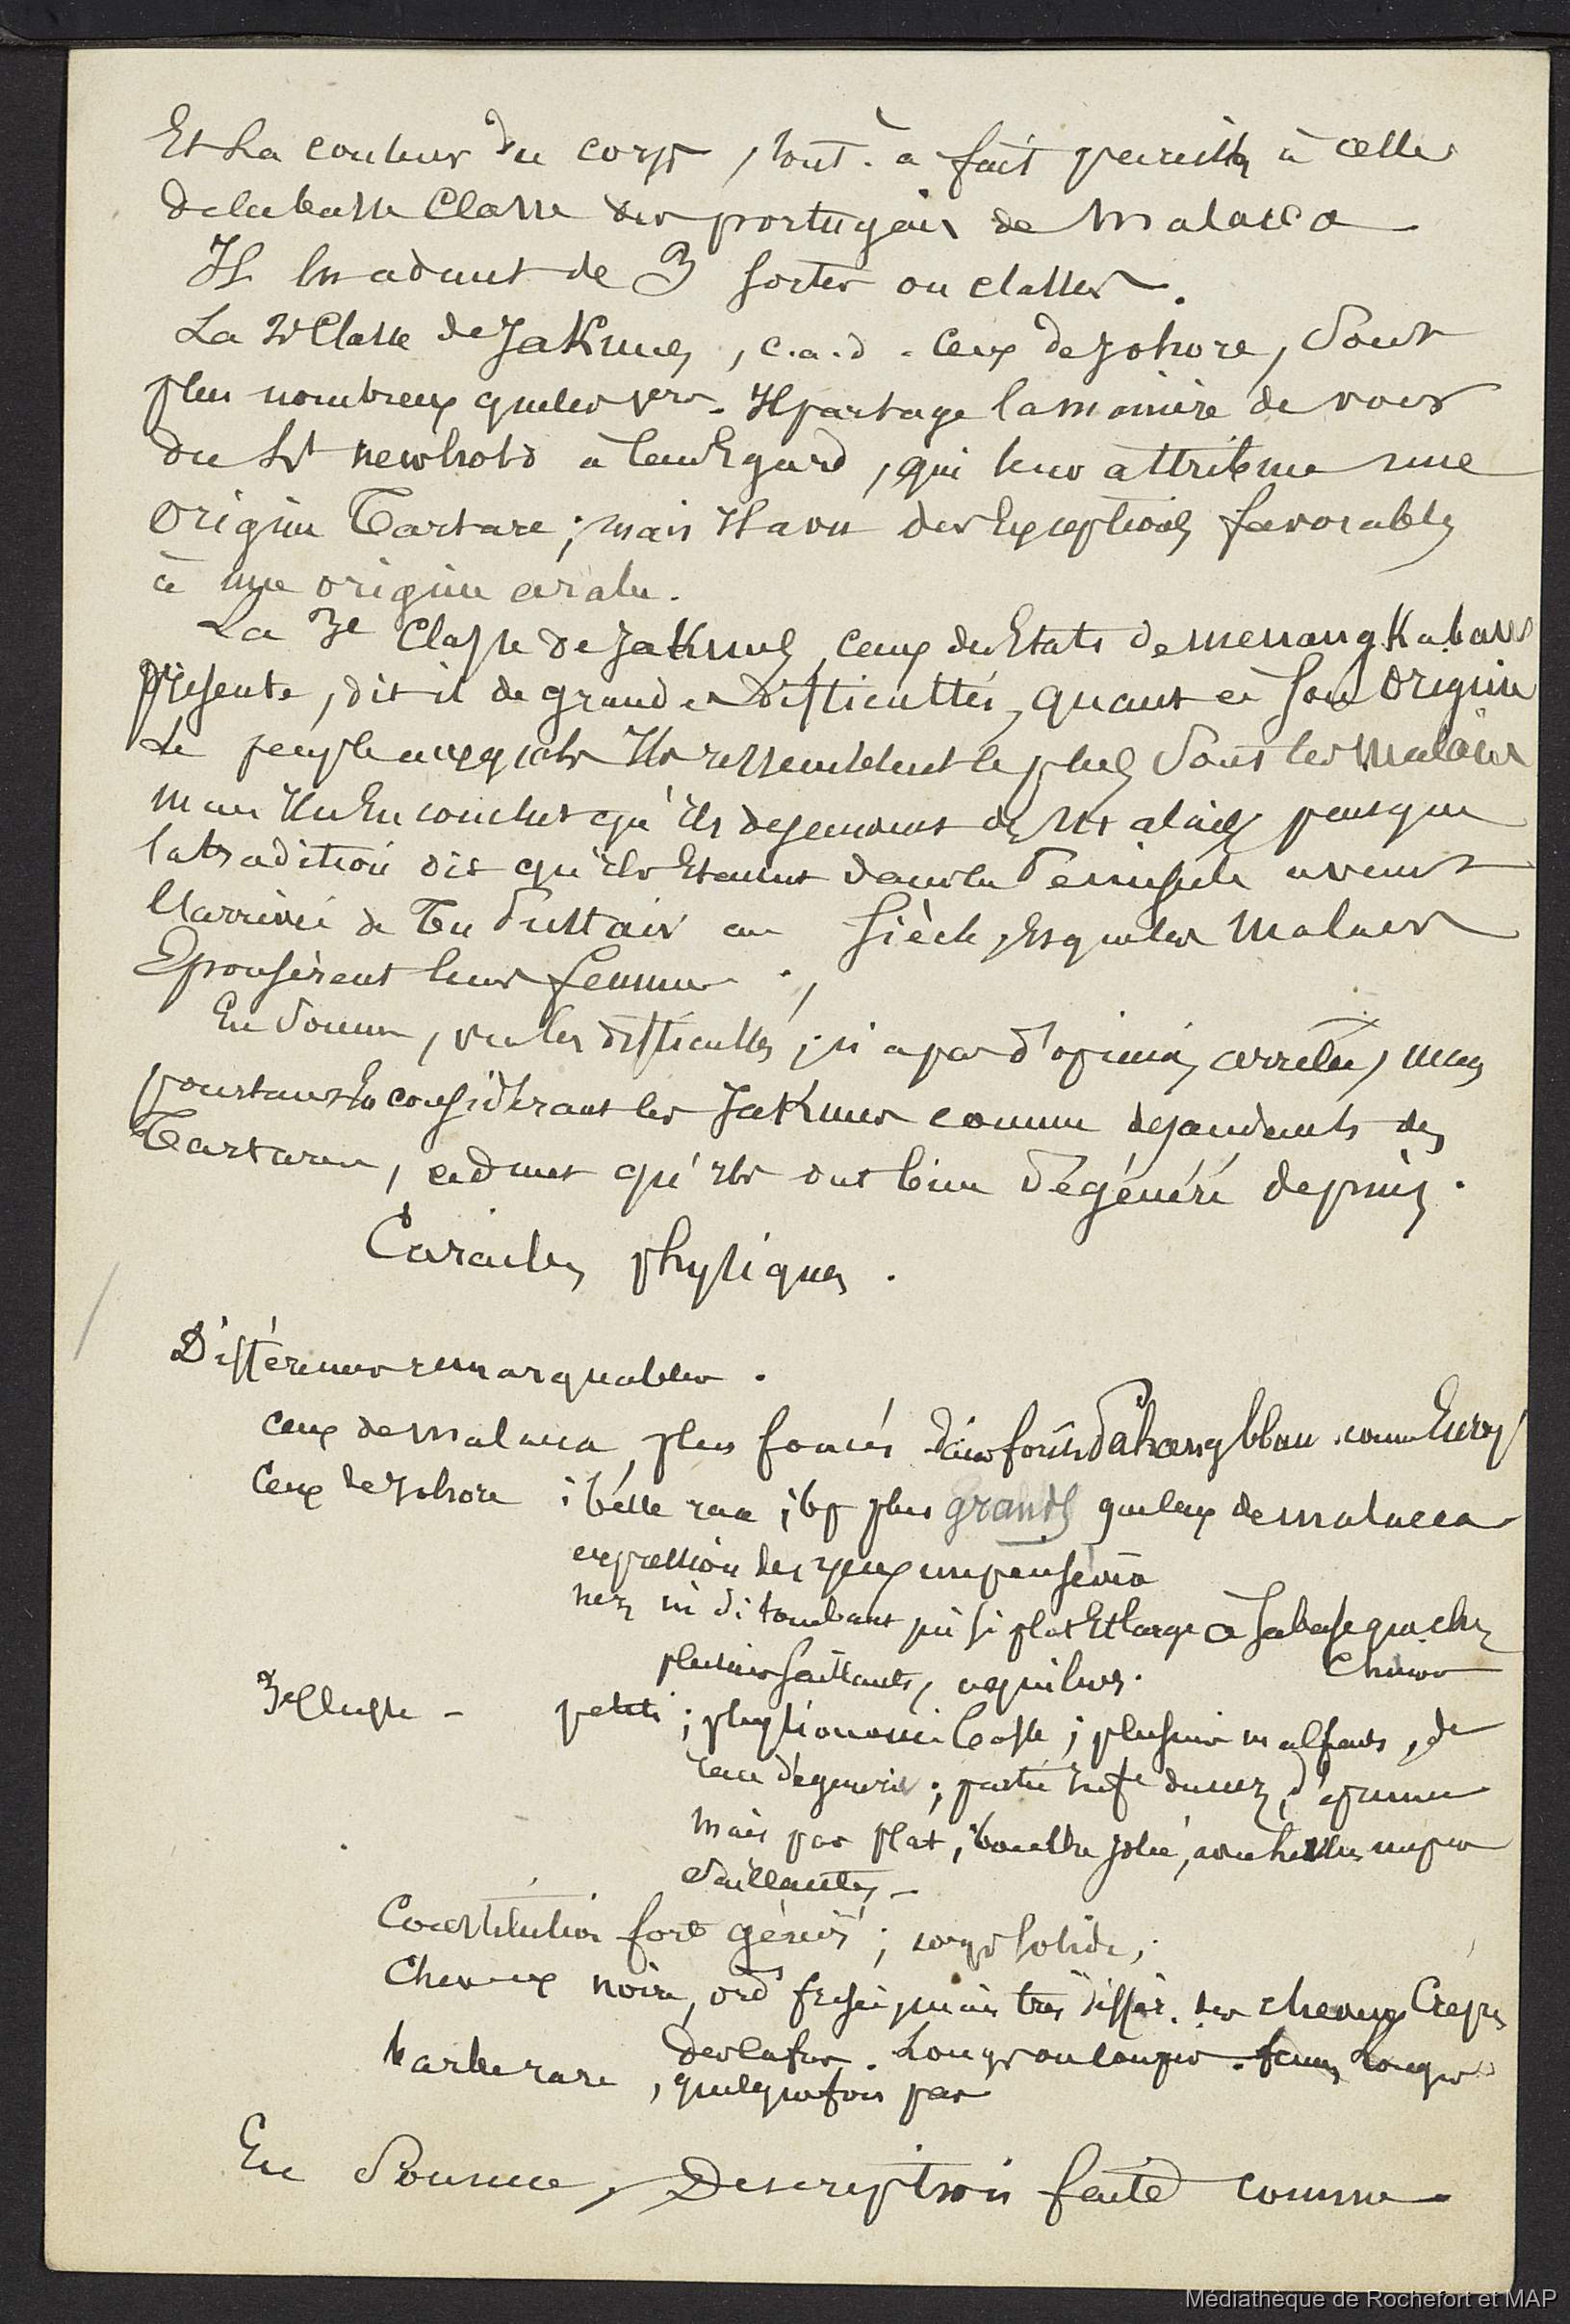 Et la couleur du corps, tout-à fait pareille à celle
de la basse classe des portugais de Malacca
Il en admet de 3 sortes ou classes.
La 2e Classe de Jakuns, c.a.d. ceux de Johore, sont
plus nombreux que les 1ers. Il partage la manière de voir
du Lt newbold à leur Egard, qui leur attribue une
origine Tartare; mais Il a vu des Exceptions favorables
à une origine arabe.
La 3e Classe de Jakuns, ceux des Etats de menangkabaw
présente, dit il de grandes difficultés, quant à son origine
Le peuple auxquels Ils ressemblent le plus sont les Malais
mais Il en conclut qu'ils descendent des Malais puisque
la tradition dit qu'ils Etaient dans la Peninsule avant
l'arrivée de au siècle, Et que les Malais
Epousèrent leurs femmes.
En somme, vu les difficultés, n'a pas d'opinion arrêtée, mais
pourtant En considérant les Jakuns comme descendants des
Tartares, admet qu'ils ont bien dégénéré depuis.
Caractères physiques.
Différences remarquables.
ceux de Malacca, plus foncés
Ceux de Johore ; belle race ; bp plus grands que ceux de malacca
expression des yeux un peu
nez ni si tombant ni si plat Et large à sa base que chez
plusieurs saillants, aquilins. Chinois
3e Classe - petits ; physionomie basse ; plusieurs malfaits, de
race dégénérée ; partie infre du nez déprimée
mais pas plat, bouche jolie, avec lèvres un peu
saillantes -
Constitution fort ; corps solide ;
Cheveux noirs, ord frisés, mais très différ. des cheveux Crépus
des Cafres. Longs ou coupés. femmes Longs
barbe rare, quelquefois pas
En Somme, Description faite comme